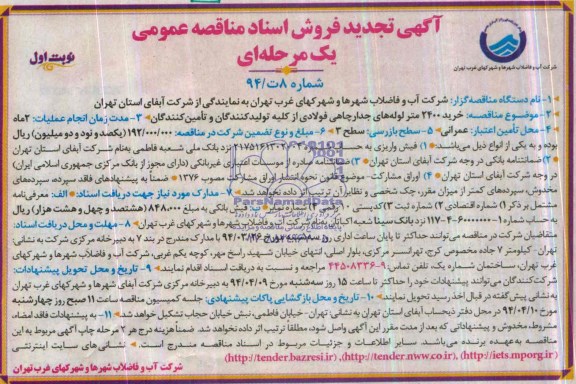 آگهی تجدید فروش اسناد مناقصه عمومی
یک مرحله‌ای
نوبت اول
شماره ۸ت/۹۴
شرکت آب و فاضلاب شهرها و شهرکهای غرب تهران
۱- نام دستگاه مناقصه‌گزار: شرکت آب و فاضلاب شهرها و شهرکهای غرب تهران به نمایندگی از شرکت آبفای استان تهران
۲- موضوع مناقصه: خرید ۲۴۰۰ متر لوله‌های جدارچاهی فولادی از کلیه تولیدکنندگان و تأمین‌کنندگان ۳- مدت زمان انجام عملیات: ۲ماه
۴- محل تأمین اعتبار: عمرانی ۵- سطح بازرسی: سطح ۳ ۶- مبلغ و نوع تضمین شرکت در مناقصه: ۱۹۲/۰۰۰/۰۰۰ (یکصد و نود و دو میلیون) ریال
بوده و به یکی از انواع ذیل می‌باشد: ۱) فیش واریزی به نزد بانک ملی شعبه فاطمی به‌نام شرکت آبفای استان تهران
۲) ضمانتنامه بانکی در وجه شرکت آبفای استان تهران ۳) ضمانتنامه صادره از موسسات اعتباری غیربانکی (دارای مجوز از بانک مرکزی جمهوری اسلامی ایران)
در وجه شرکت آبفای استان تهران ۴) اوراق مشارکت- موضوع قانون نحوه انتشار اوراق مشارکت مصوب ۱۳۷۶ ضمناً به پیشنهادهای فاقد سپرده، سپرده‌های
مخدوش، سپرده‌های کمتر از میزان مقرر، چک شخصی و نظایر آن ترتیب اثر داده نخواهد شد. ۷- مدارک مورد نیاز جهت دریافت اسناد: الف: معرفی‌نامه
مشتمل بر ذکر ۱) شماره اقتصادی ۲) شماره ثبت ۳) کدپستی بانکی به مبلغ ۸۴۸.۰۰۰ (هشتصد و چهل و هشت هزار) ریال
به حساب شماره نزد بانک سینا شعبه شهرها و شهرکهای غرب تهران ۸- مهلت و محل دریافت اسناد:
متقاضیان شرکت در مناقصه می‌توانند حداکثر تا پایان ساعت اداری روز سه‌شنبه مورخ ۹۴/۰۳/۲۶ با مدارک مندرج در بند ۷ به دبیرخانه مرکزی شرکت به نشانی:
تهران- کیلومتر ۷ جاده مخصوص کرج، تهرانسر مرکزی، بلوار اصلی، انتهای خیابان شهید راسخ مهر، کوچه یکم غربی، شرکت آب و فاضلاب شهرها و شهرکهای
غرب تهران، ساختمان شماره یک، تلفن تماس: ۹-۴۴۵۰۸۳۳۶ مراجعه و نسبت به دریافت اسناد اقدام نمایند. ۹- تاریخ و محل تحویل پیشنهادات:
شرکت‌کنندگان می‌توانند پیشنهادات خود را حداکثر تا ساعت ۱۵ روز سه‌شنبه مورخ ۹۴/۰۴/۰۹ به دبیرخانه مرکزی شرکت آب و فاضلاب شهرها و شهرکهای غرب تهران
به نشانی پیش گفته در قبال اخذ رسید تحویل نمایند. ۱۰- تاریخ و محل بازگشایی پاکات پیشنهادی: جلسه کمیسیون مناقصه ساعت ۱۱ صبح روز چهارشنبه
مورخ ۹۴/۰۴/۱۰ در محل دفتر ذیحساب آبفای استان تهران به نشانی: تهران- خیابان فاطمی، نبش خیابان حجاب تشکیل خواهد شد. ۱۱- به پیشنهادات فاقد امضاء،
مشروط، مخدوش و پیشنهاداتی که بعد از مدت مقرر این آگهی واصل شود، مطلقا ترتیب اثر داده نخواهد شد. ضمناً هزینه درج هر ۲ مرحله چاپ آگهی مربوط به این
مناقصه به‌عهده برنده می‌باشد. سایر اطلاعات و جزئیات مربوط در اسناد مناقصه مندرج است. نشانی های سایت اینترنتی
(http://tender.bazresi.ir) ,(http://tender.nww.co.ir), (http://iets.mporg.ir)
شرکت آب و فاضلاب شهرها و شهرکهای غرب تهران